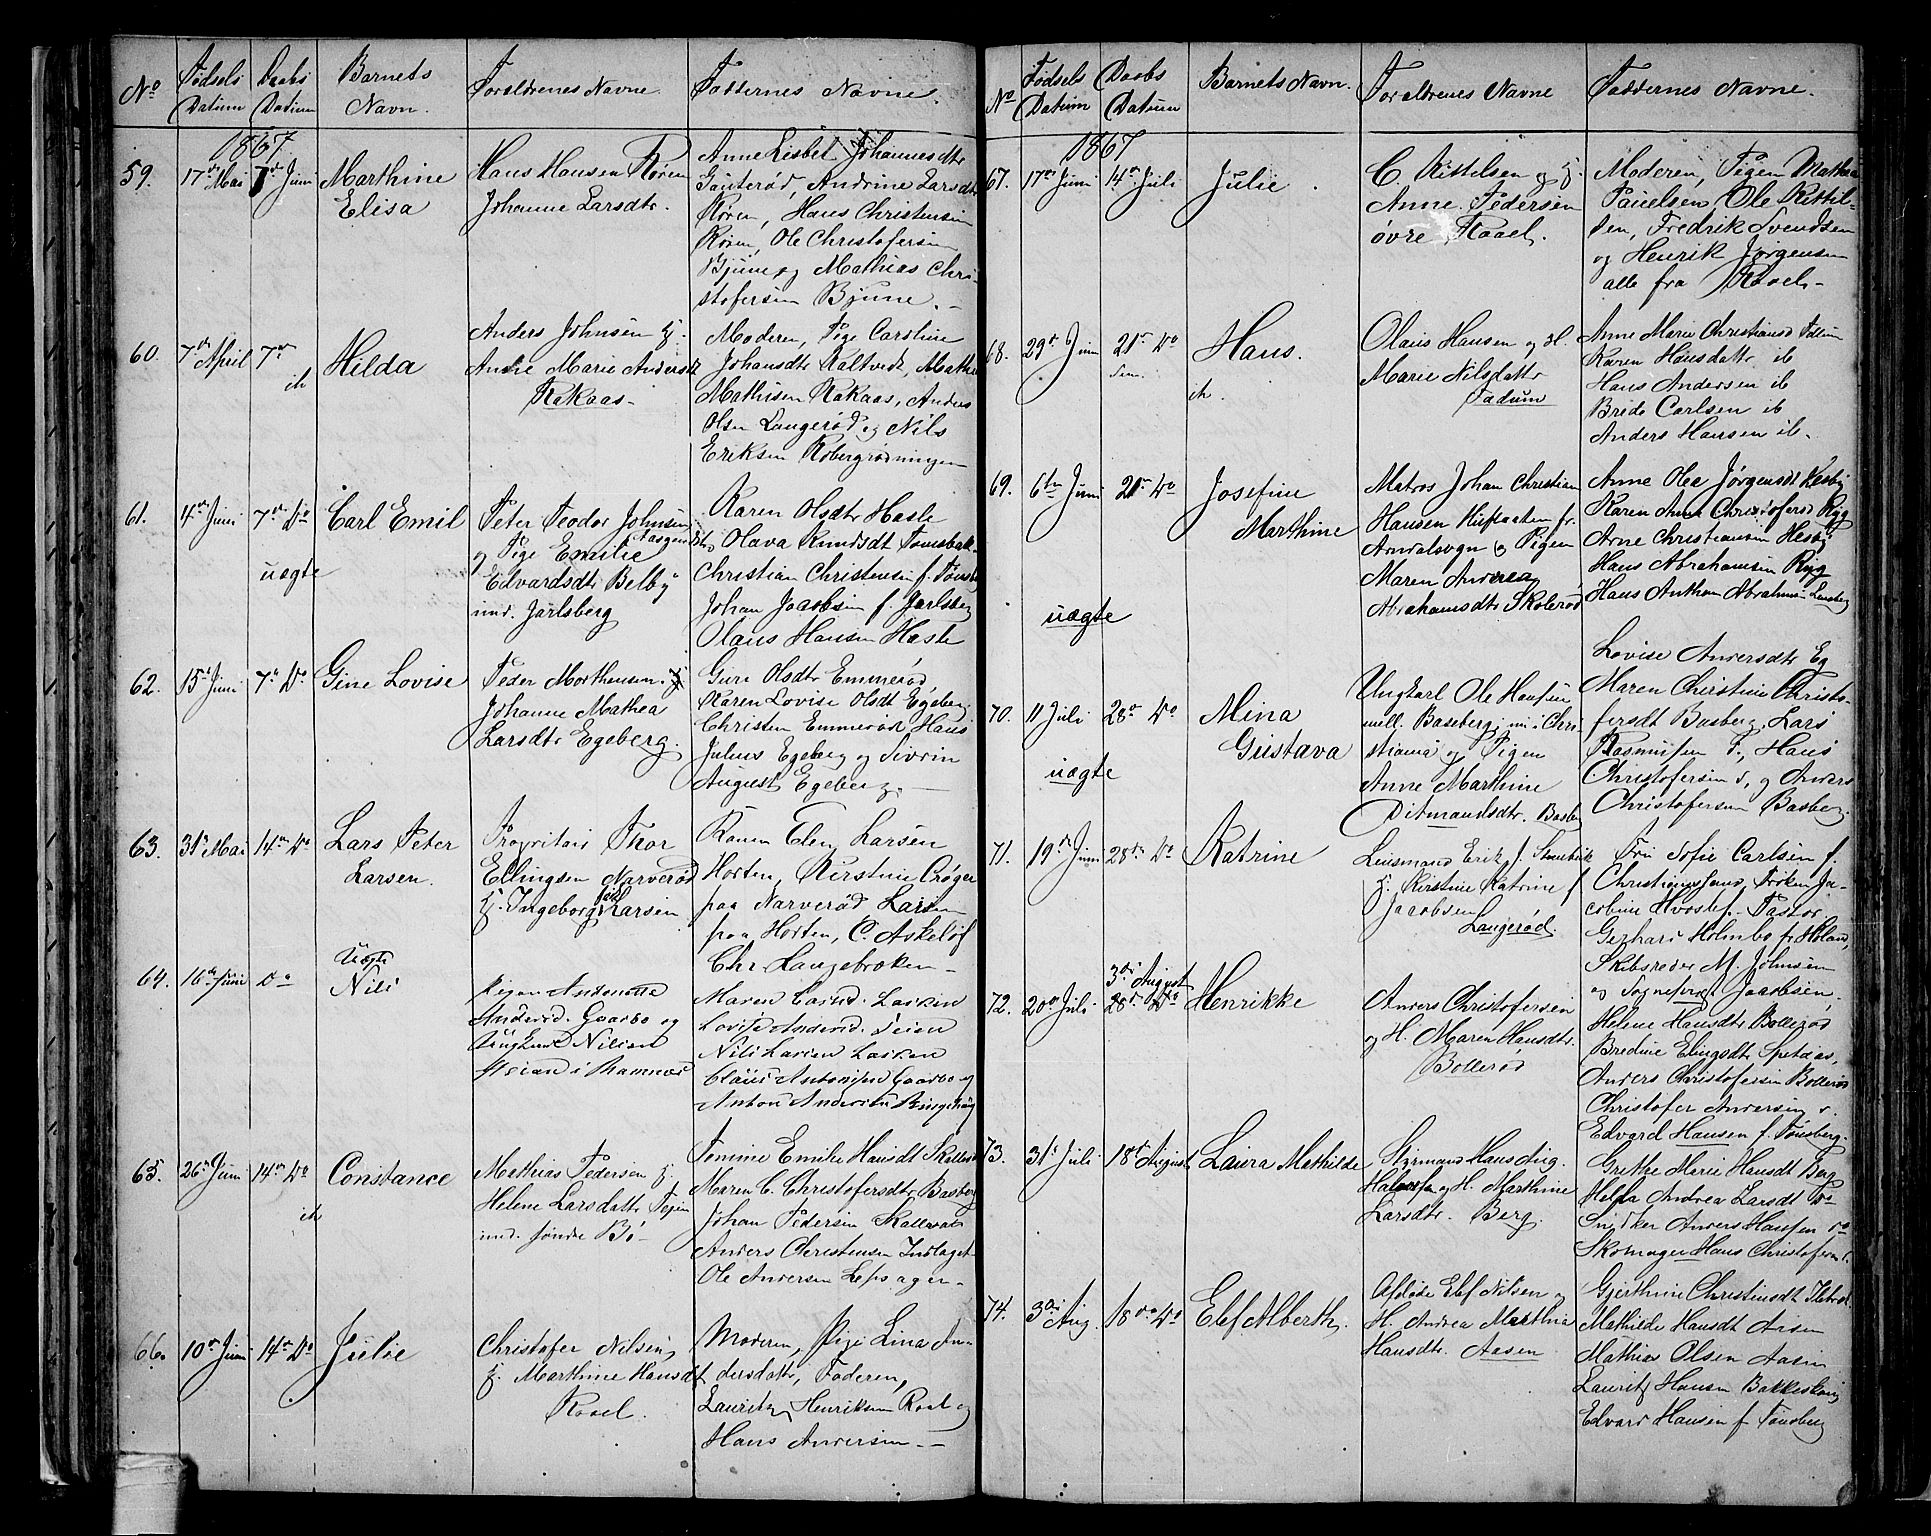 No Fødsels Daabs Barnets Forældrenes Navne. Faddernes Navne.
Datum Datum Navn.
1867
59. 17de Mai 7de Juni Marthine Elisa
Hans Hansen Røren
Johanne Larsdtr.
Anne Lisbet Johannesdtr
Gauterød, Andrine Larsdtr
Røren, Hans Christensen
Røren, Ole Christofersen
Bjune og Mathias Chri-
stofersen Bjune. -
60. 7de April 7de Hilda
ib
Anders Johnsen Hj.
Anne Marie Andersdt
Rakaas-
Moderen, Pige Caroline
Johansdtr Kaltvedt, Mathe
Mathisen Rakaas, Anders
Olsen Langerød og Nils
Eriksen Robergrødningen
61. 4de Juni 7de Do Carl Emil
uægte
Peter Teodor Johnsen
og Pige Emilie
Edvardsdtr Belby
und. Jarlsberg
Karen Olsdtr Hasle
Olava Knudsdt Tomsbak-
Christian Christensen f. Tønsb
Johan Jacobsen f. Jarlsberg
Olaus Hansen Hasle
62. 15de Juni 7de Do Gine Lovise
Peder Morthensen. Hj
Johanne Mathea
Larsdtr Egeberg.
Guri Olsdtr Emmerød
Karen Lovise Olsdt Egeberg
Christen Emmerød Hans
Julius Egeberg og Sivrin
August Egeberg. -
63. 31te Mai 14de Do Lars Peter
Larsen.
Propritær Thor
Ellingsen Narverød
Hj. Ingeborg Larsen
Karen Elen Larsen
Horten, Kirstine Crøger
paa Narverød Larsen
paa Horten, C. Askeløf
Chr. Langebroken-
64. 16de Juni Do Uægte
Nils
Pigen Antonette
Andersd. Gaarbo og
Ungkarl Nilsen
i Ramnæs
Maren Larsd. Larsen
Lovise Andersd. Seien
Nils Larsen Larsen
Claus Antonsen Gaarbo og
Anton Andersen Ringshaug
65. 26de Juni 14de Do Constance
ib
Mathias Pedersen Hj.
Helene Larsdatter Feyen
und. søndre Bø-
Tomine Emilie Hansdt Skallevold
Maren C. Christofersdtr Basberg
Johan Pedersen Skallevold
Anders Christensen Indlaget
Ole Andersen Lepsager-
66. 10de Juni 14de Do Julie
Christofer Nilsen,
Hj. Marthine Hansdt
Roael.
Moderen, Pige Lina An-
dersdatter, Faderen,
Lauritz Henriksen Roal og
Hans Andersen. -
No Fødsels Daabs Barnets Navn. Forældrenes Navne Faddernes Navne.
Datum Datum
1867
67. 17de Juni 14de Juli Julie.
C. Kittelsen og Hj.
Anne Pedersen
øvre Roael.
Moderen, Pigen Mathea
Paulsen, Ole Kittil-
sen, Fredrik Svendsen
og Henrik Jørgensen
alle fra Roael-
68. 29de Juni 21de Do Hans.
ib.
Olaus Hansen og H.
Marie Nilsdatter
Tadum
Anne Marie Christiansd Tadum
Karen Hansdattr ib
Hans Andersen ib
Brede Carlsen ib
Anders Hansen ib.
69. 6te Juni 21de Do Josefine
Marthine
uægte
Matros Johan Christian
Hansen Rifsaaten fr.
Arndalsogn og Pigen
Maren Andrea
Abrahamsdtr Skolerød
Anne Olea Jørgensdt Hesby
Karen Anne Christofersd Ryg
Arne Christiansen Hesby
Hans Abrahamsen Ryg
Hans Anthon Abrahamsen Lensberg
70. 11 Juli 28de Do Mina
Gustava
uægte
Ungkarl Ole Hansen
mell. Baseberg, nu i Chri-
stiania og Pigen
Anne Marthine
Ditmandsdtr. Basberg
Lovise Andersdtr Eg
Maren Christine Christo-
fersdt Basberg, Lars
Rasmussen F., Hans
Christofersen d. og Anders
Christofersen Basberg.
71. 19de Juni 28de Do Katrine
Linsmand Erik f.
Hj. Kirstine Katrine f
Jacobsen
Langerød.
Fru Sofie Carlsen f.
Christianssand, Frøken Ja-
cobine Hvoslef. Pastor
Gerhard Holmbo fr. Høland,
Skibsreder M. Johnsen
og Sogneprest Jacobsen.
72. 20de Juli 3de August
28de Do Henrikke
Anders Christofersen
og H. Maren Hansdtr.
Bollerød
Helene Hansdtr Bollerød
Bredine Elingsdtr Spetaas,
Anders Christofersen Bollerød
Christofer Andersen d.
Edvard Hansen f. Tønsberg.
73. 31te Juli 18de August Laura Mathilde
Styrmand Hans Aug.
Halvorsen og H. Marthine
Larsdtr. Berg.
Grethe Marie Hansdt Berg
Helda Andrea Larsdt Do
Snidker Anders Hansen do
Skomager Hans Christofersen d.
74. 3die Aug. 18de Do Elef Alberth.
Afdøde Elef Nilsen og
H. Andrea Marthea
Hansdtr. Aasen
Gjerthine Christiansdt
Mathilde Hansdt Aasen
Mathias Olsen Aasen
Lauritz Hansen Bakkeskoug
Edvard Hansen f Tønsberg